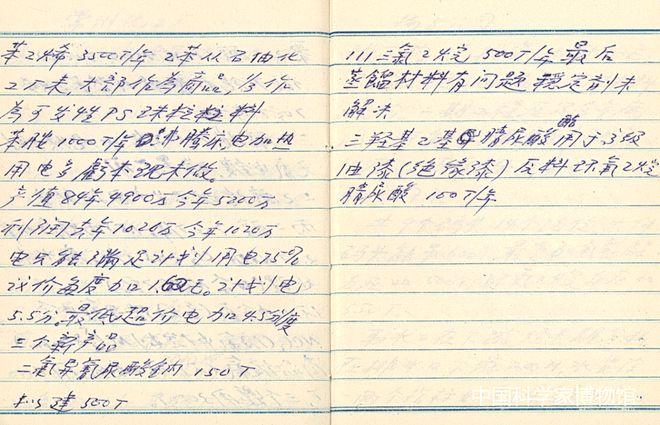 苯乙烯 3500T/年 乙苯从石油化
工厂来,大部作为商品,少作
为可发性PS珠粒粒料
苯胺1000T/年 沸腾床,电加热
用电多 亏本 现未做。
产值84年4900万 今年5200万
利润去年1020万 今年1020万
电只能满足计划用电75%
议价每度加1.6元。计划电
5.5分。最低超价电力加45分/度
三个新产品
二氯异氰尿酸钠 150T
扩建 500T
111三氯乙烷 500T/年 最后
蒸馏材料有问题 稳定剂未
解决
三羟基乙基腈尿酸酯用于3级
油漆(绝缘漆)原料环氧乙烷
腈尿酸 100T/年
中国科学家博物馆